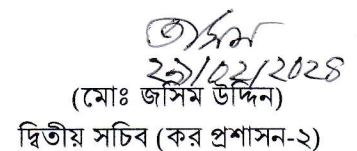 ২৯/০২/২০২৪
(মোঃ জসিম উদ্দিন)
দ্বিতীয় সচিব (কর প্রশাসন-২)